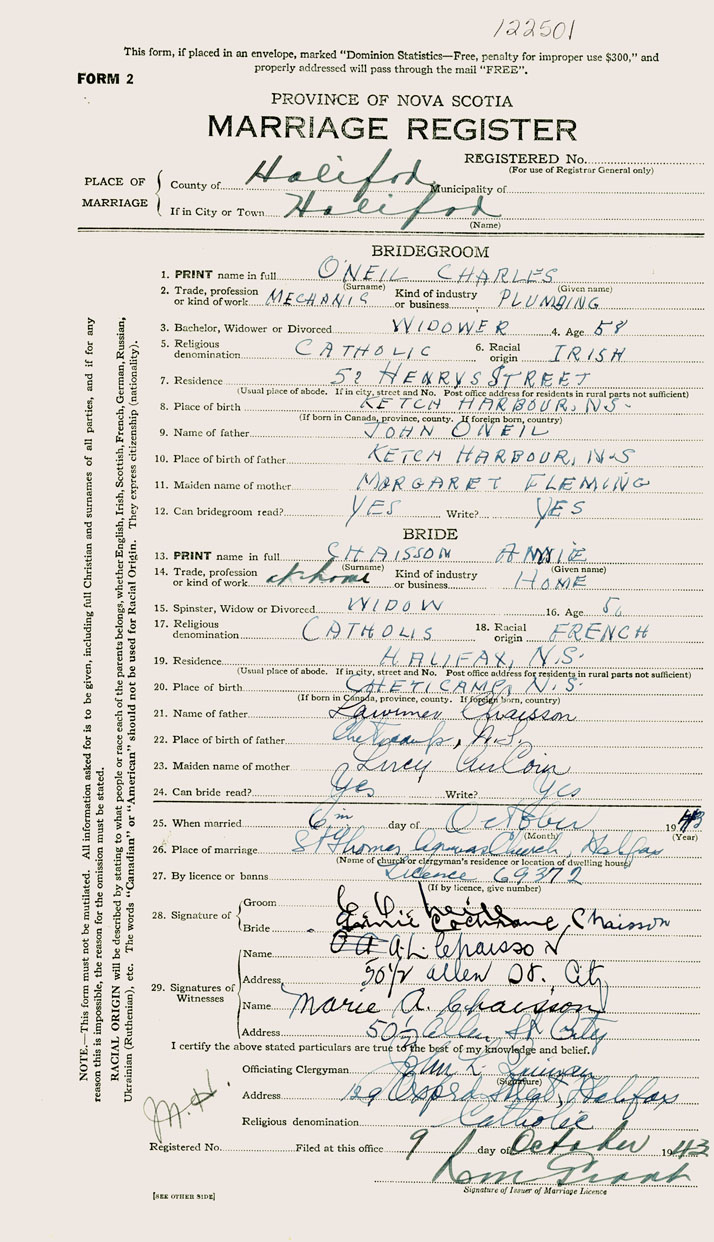 122501
This form, if placed in an envelope, marked “Dominion Statistics—Free, penalty for improper use $300,” and
properly addressed will pass through the mail “FREE”.
FORM 2
PROVINCE OF NOVA SCOTIA
MARRIAGE REGISTER
REGISTERED No.
(For use of Registrar General only)
PLACE OF MARRIAGE
County of Halifax Municipality of
If in City or Town Halifax
(Name)
BRIDEGROOM
1. PRINT name in full O'NEIL CHARLES
(Surname) (Given name)
2. Trade, profession or kind of work MECHANIC Kind of industry or business PLUMBING
3. Bachelor, Widower or Divorced WIDOWER 4. Age 58
5. Religious denomination CATHOLIC 6. Racial origin IRISH
7. Residence 52 HENRYS STREET
(Usual place of abode. If in city, street and No. Post office address for residents in rural parts not sufficient)
8. Place of birth KETCH HARBOUR, N.S.
(If born in Canada, province, county. If foreign born, country)
9. Name of father JOHN ONEIL
10. Place of birth of father KETCH HARBOUR, N.S
11. Maiden name of mother MARGARET FLEMING
12. Can bridegroom read? YES Write? YES
BRIDE
13. PRINT name in full CHAISSON ANNIE
(Surname) (Given name)
14. Trade, profession or kind of work at home Kind of industry or business HOME
15. Spinster, Widow or Divorced WIDOW 16. Age
17. Religious denomination CATHOLIC 18. Racial origin FRENCH
19. Residence HALIFAX, N.S.
(Usual place of abode. If in city, street and No. Post office address for residents in rural parts not sufficient)
20. Place of birth CHETICAMP, N.S.
(If born in Canada, province, county. If foreign born, country)
21. Name of father Chaisson
22. Place of birth of father Cheticamp, N.S.
23. Maiden name of mother Lucy AuCoin
24. Can bride read? Yes Write? Yes
25. When married day of October 1943
(Month) (Year)
26. Place of marriage St Thomas Aquinas Church, Halifax
(Name of church or clergyman's residence or location of dwelling house)
27. By licence or banns Licence 69372
(If by licence, give number)
28. Signature of
Groom
Bride Annie Cochrane, Chaisson
29. Signatures of Witnesses
Name A. L. Chaisson
Address 50½ Allen St. City
Name Marie A. Chaisson
Address 50½ Allen St City
I certify the above stated particulars are true to the best of my knowledge and belief.
Officiating Clergyman John L.
(Signature)
Address Oxford Street, Halifax
Religious denomination Catholic
M.H.
Registered No. Filed at this office 9 day of October 1943
Grant
Signature of Issuer of Marriage Licence
[SEE OTHER SIDE]
NOTE.—This form must not be mutilated. All information asked for is to be given, including full Christian and surnames of all parties, and if for any
reason this is impossible, the reason for the omission must be stated.
RACIAL ORIGIN will be described by stating to what people or race each of the parents belongs, whether English, Irish, Scottish, French, German, Russian,
Ukrainian (Ruthenian), etc. The words “Canadian” or “American” should not be used for Racial Origin. They express citizenship (nationality).